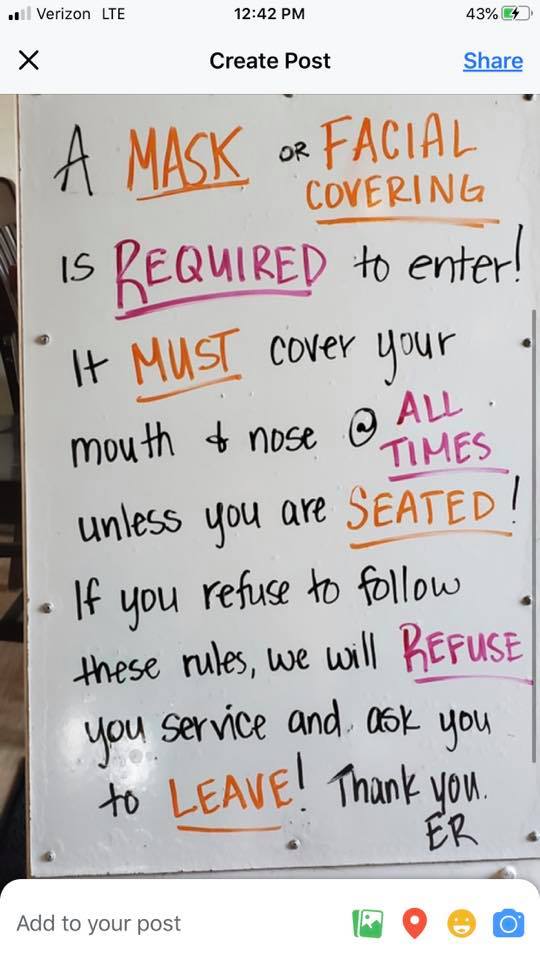 Verizon LTE 12:42 PM 43%
Create Post Share
A MASK OR FACIAL COVERING
is REQUIRED to enter!
It MUST cover your
mouth & nose @ ALL TIMES
unless you are SEATED!
If you refuse to follow
these rules, we will REFUSE
you service and ask you
to LEAVE! Thank you.
ER
Add to your post